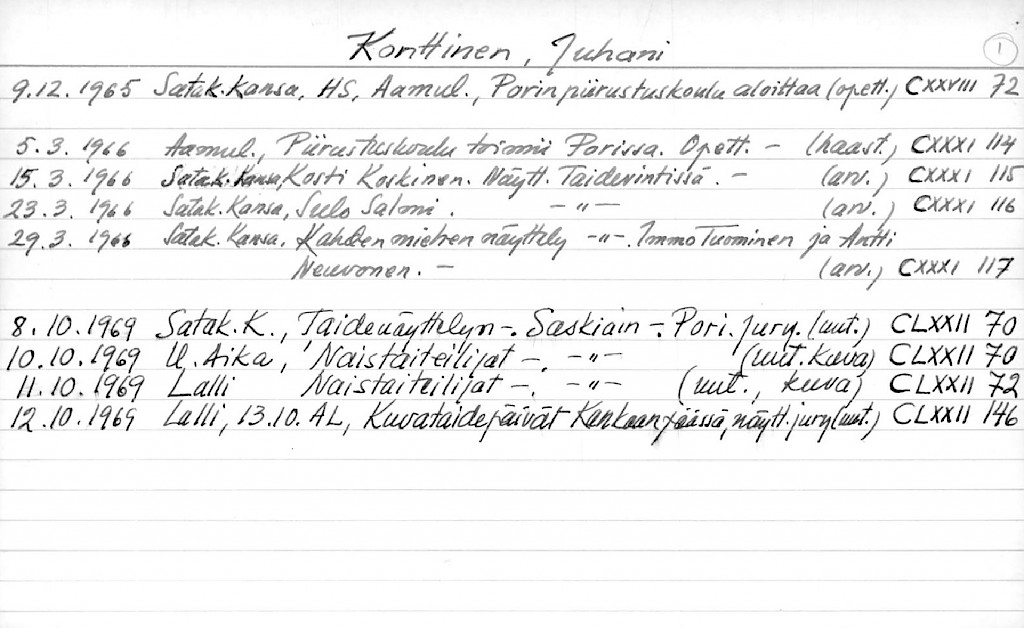 Konttinen, Juhani 1
9.12.1965 Satak.Kansa, HS, Aamul., Porin piirustuskoulu aloittaa (opett.) CXXVIII 72
5.3.1966 Aamul., Piirustuskoulu toimii Porissa. Opett. - (haast.) CXXXI 114
15.3.1966 Satak.Kansa, Kosti Koskinen. Näytt. Taidevintissä. - (arv.) CXXXI 115
23.3.1966 Satak.Kansa, Sulo Salmi. -"- (arv.) CXXXI 116
29.3.1966 Satak.Kansa, Kahden miehen näyttely -"-. Immo Tuominen ja Antti
Neuvonen. - (arv.) CXXXI 117
8.10.1969 Satak.K., Taidenäyttelyn -. Saskiain -. Pori. jury. (uut.) CLXXII 70
10.10.1969 U. Aika, Naistaiteilijat -. -"- (uut. kuva) CLXXII 70
11.10.1969 Lalli Naistaiteilijat -. -"- (uut., kuva) CLXXII 72
12.10.1969 Lalli, 13.10. AL, Kuvataidepäivät Kankaanpäässä, näytt. jury (uut.) CLXXII 146